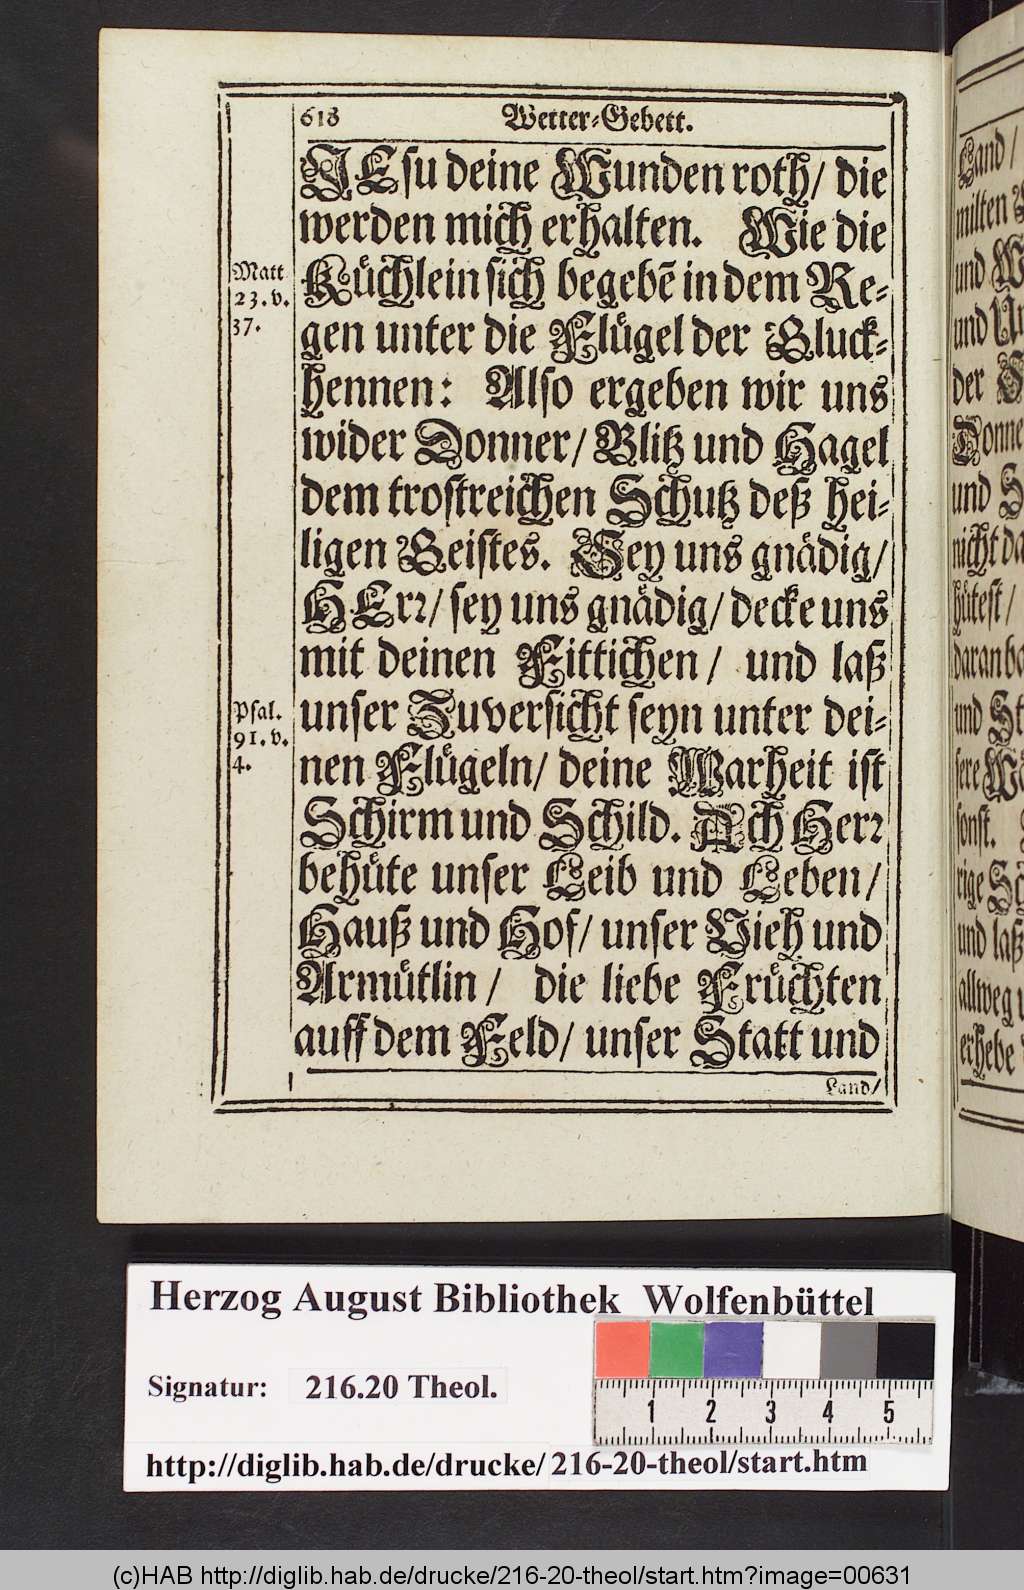 618 Wetter-Gebett.
JEsu deine Wunden roth/ die
werden mich erhalten. Wie die
Matt. 23. v. 37.
Küchlein sich begebē in dem Re-
gen unter die Flügel der Gluck-
hennen: Also ergeben wir uns
wider Donner/ Blitz und Hagel
dem trostreichen Schutz deß hei-
ligen Geistes. Sey uns gnädig/
HErꝛ/ sey uns gnädig/ decke uns
mit deinen Fittichen/ und laß
Psal. 91. v. 4.
unser Zuversicht seyn unter dei-
nen Flügeln/ deine Warheit ist
Schirm und Schild. Ach Herꝛ
behüte unser Leib und Leben/
Hauß und Hof/ unser Vieh und
Armütlin/ die liebe Früchten
auff dem Feld/ unser Statt und
Land/
Land/
milten
und
und
der
Donne
und
nicht da
hütest/
daran
und St
sere
sonst.
rige
und laß
allweg
erhebe
Herzog August Bibliothek Wolfenbüttel
Signatur: 216.20 Theol.
1 2 3 4 5
http://diglib.hab.de/drucke/216-20-theol/start.htm
(c)HAB http://diglib.hab.de/drucke/216-20-theol/start.htm?image=00631